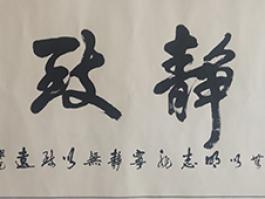 静致
以明志非寧靜無以致遠